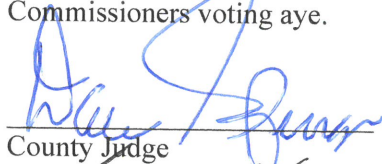 Commissioners voting aye.
County Judge